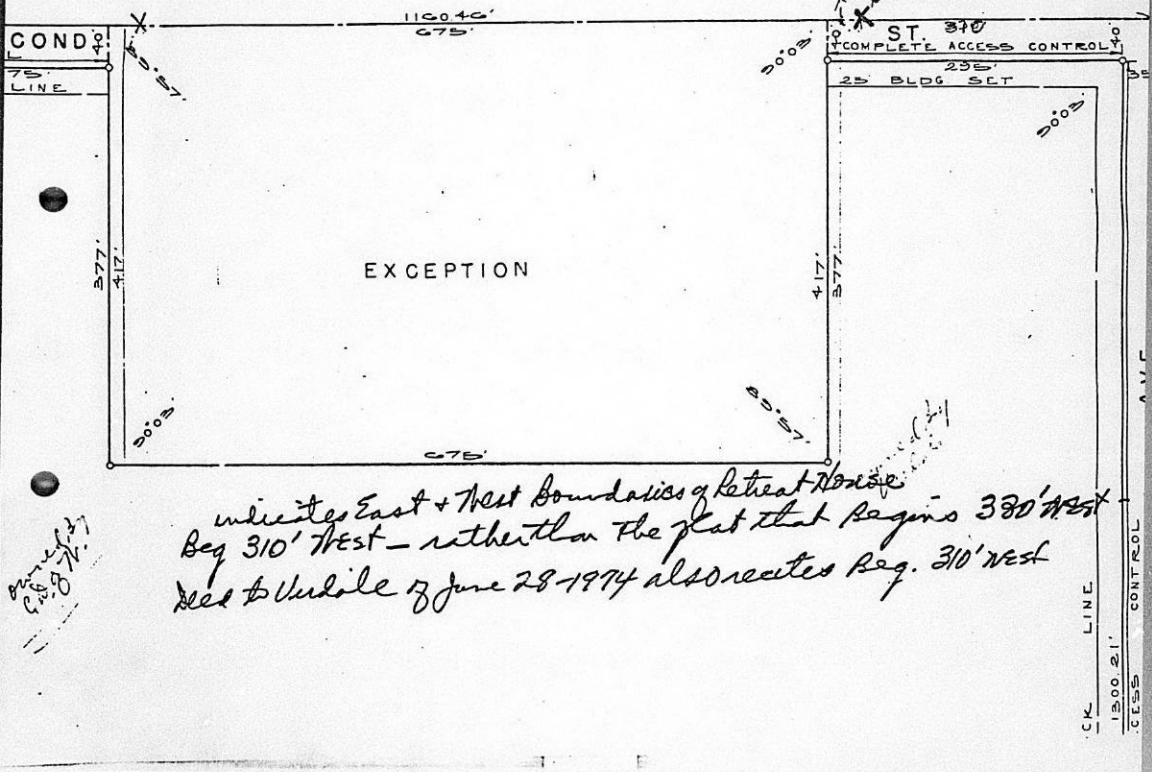 1160.46'
675'
COND.
40'
75'
LINE
89°57'
90°03'
ST. 370'
40'
COMPLETE ACCESS CONTROL
295'
35
25' BLDG SET
90°03'
377'
417'
EXCEPTION
417'
377'
90°03'
89°57'
675'
indicates East + West Boundaries of Retreat House
Beg 310' West — rather than the plat that Begins 330' West
Deed to Verdale of June 28-1974 also recites Beg. 310' West
AVE
CK LINE
1300.21'
CESS CONTROL